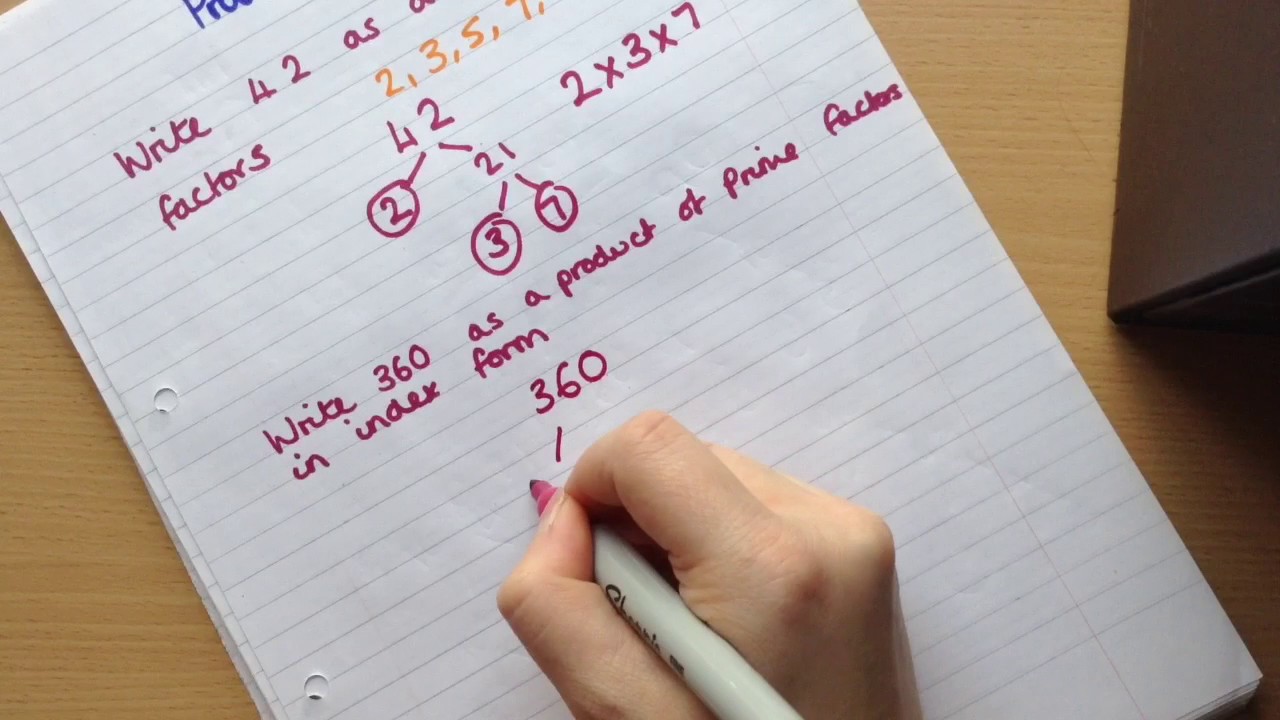 Write 42 as a
factors
2, 3, 5, 7,
42
2 21
3 7
2 x 3 x 7
Write 360 as a product of prime factors
in index form
360
Sharpie